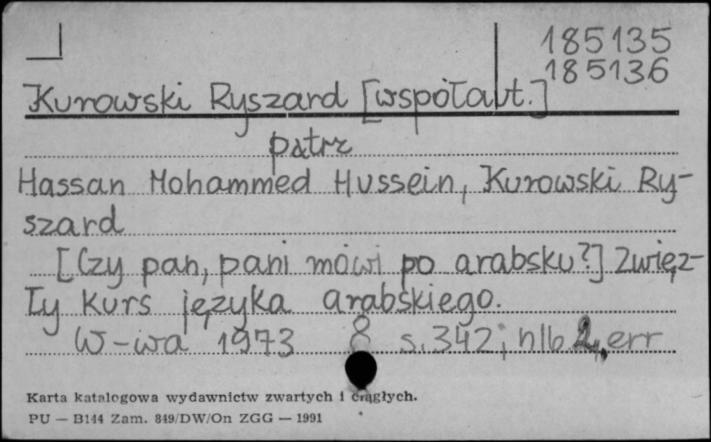 185135
185136
Kurowski Ryszard [współaut.]
patrz
Hassan Mohammed Hussein, Kurowski Ry-
szard
[Czy pan, pani mówi po arabsku?] Zwięz-
ły kurs języka arabskiego.
W-wa 1973 8 s. 342; nlb 2, err
Karta katalogowa wydawnictw zwartych i ciągłych.
PU — B144 Zam. 849/DW/On ZGG — 1991